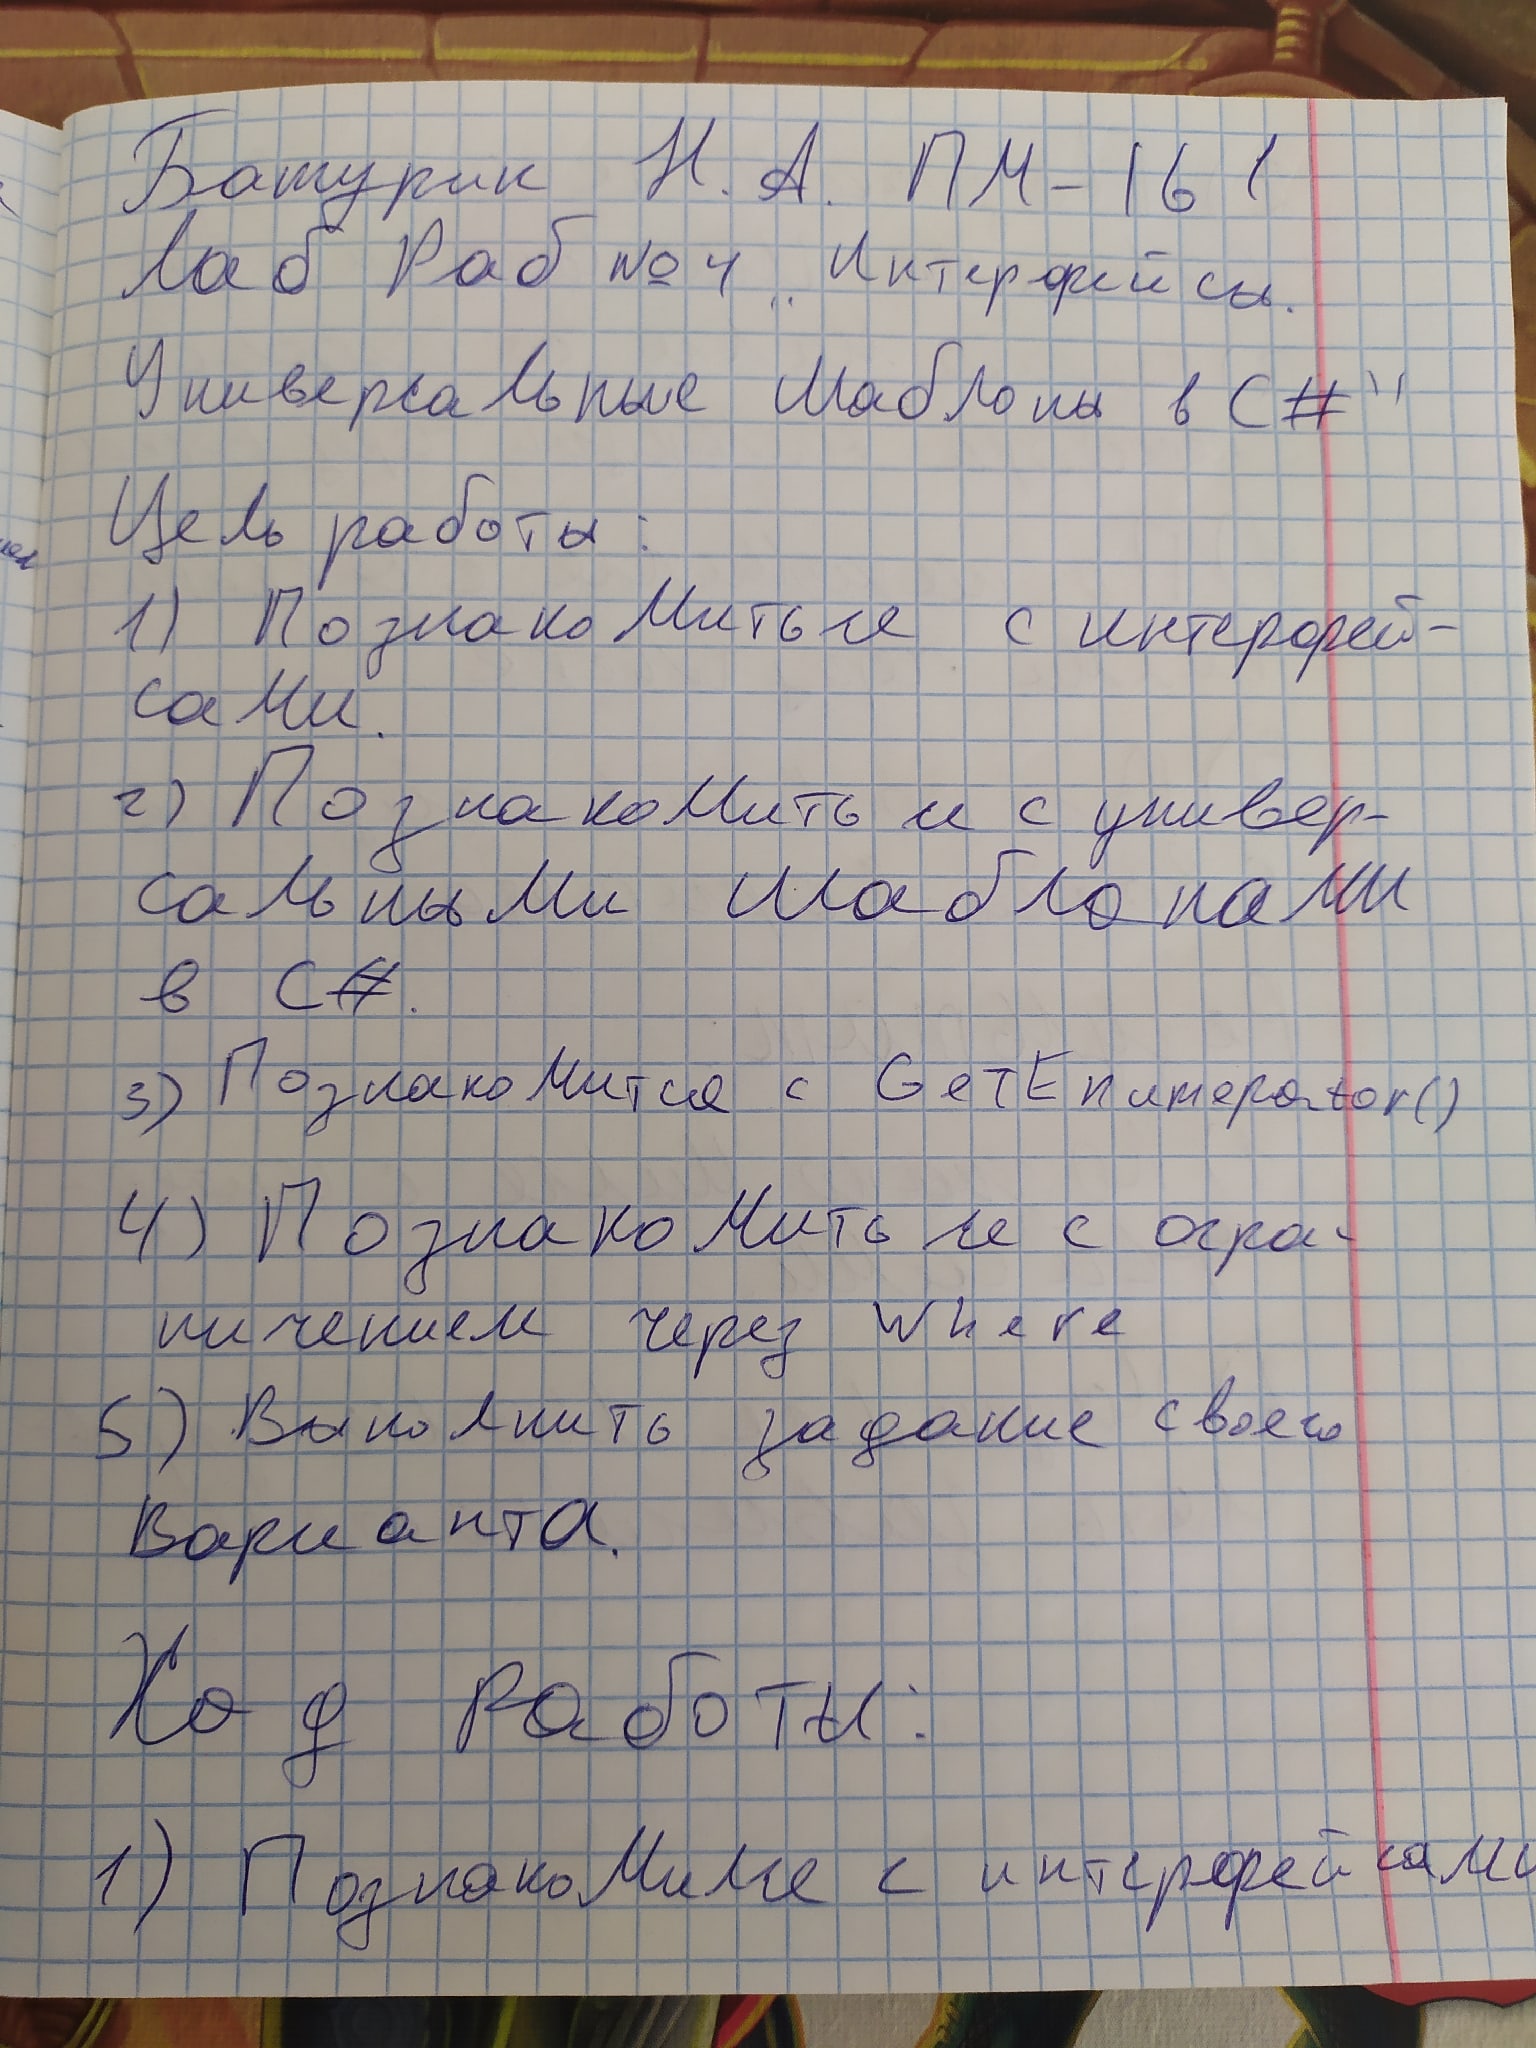 Батурин Н. А. ПМ-161
Лаб Раб №4 „Интерфейсы.
Универсальные шаблоны в C#"
Цель работы:
1) Познакомиться с интерфей-
сами.
2) Познакомиться с универ-
сальными шаблонами
в C#.
3) Познакомится с GetEnumerator()
4) Познакомиться с огра-
ничением через where
5) Выполнить задание своего
варианта.
Ход работы:
1) Познакомился с интерфейсами